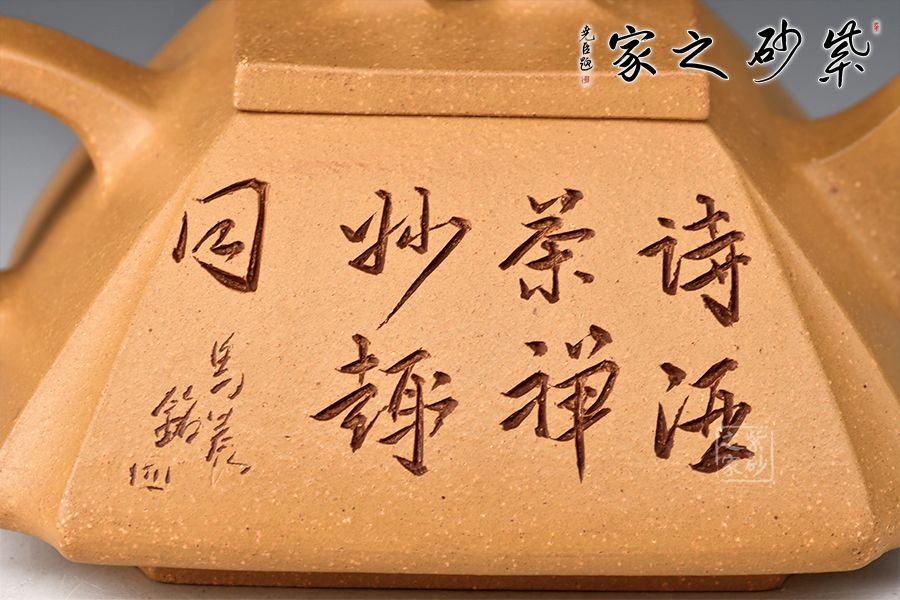 紫砂之家
尧臣题
诗酒
茶禅
妙趣
同
铭
紫砂之家